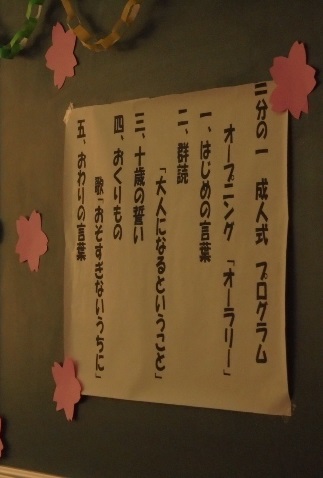 二分の一 成人式 プログラム
オープニング 「オーラリー」
一、はじめの言葉
二、群読
「大人になるということ」
三、十歳の誓い
四、おくりもの
歌「おそすぎないうちに」
五、おわりの言葉